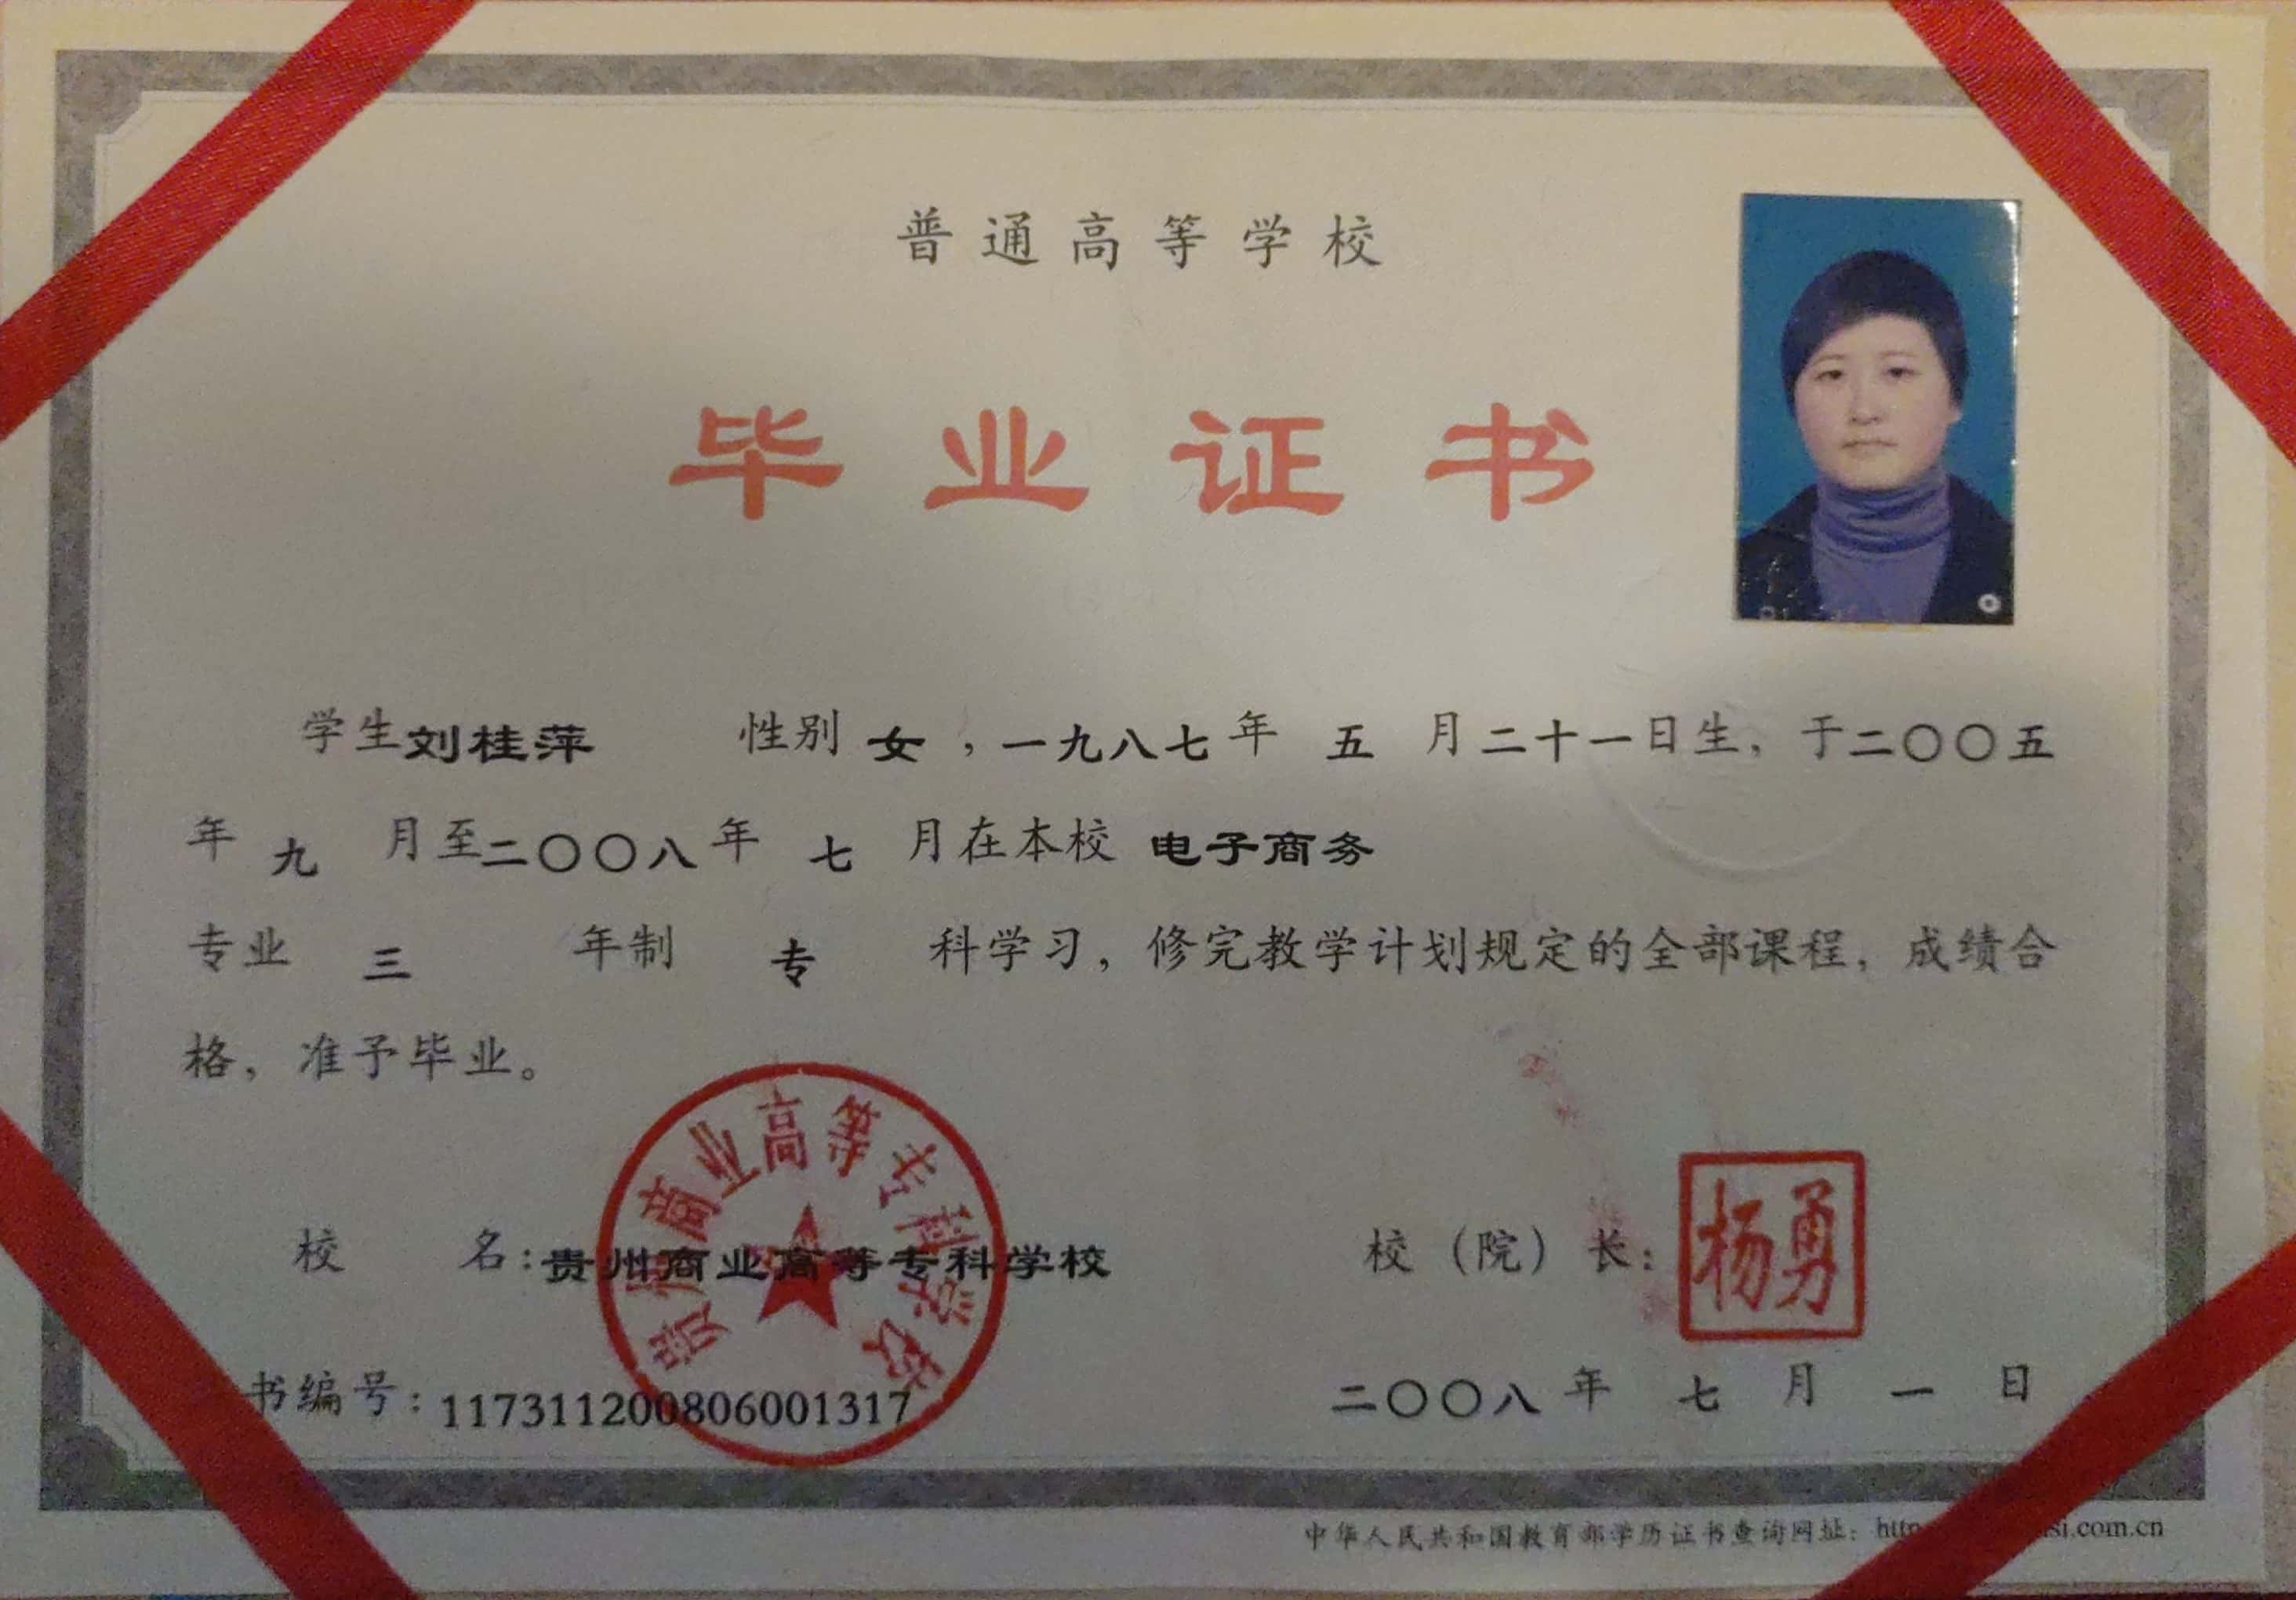 普通高等学校
毕业证书
学生刘桂萍 性别 女，一九八七年 五 月二十一日生，于二〇〇五
年 九 月至二〇〇八年 七 月在本校 电子商务
专业 三 年制 专 科学习，修完教学计划规定的全部课程，成绩合
格，准予毕业。
贵州商业高等专科学校
校 名：贵州商业高等专科学校
校（院）长：杨勇
书编号：117311200806001317
二〇〇八年 七 月 一 日
中华人民共和国教育部学历证书查询网址：http si.com.cn